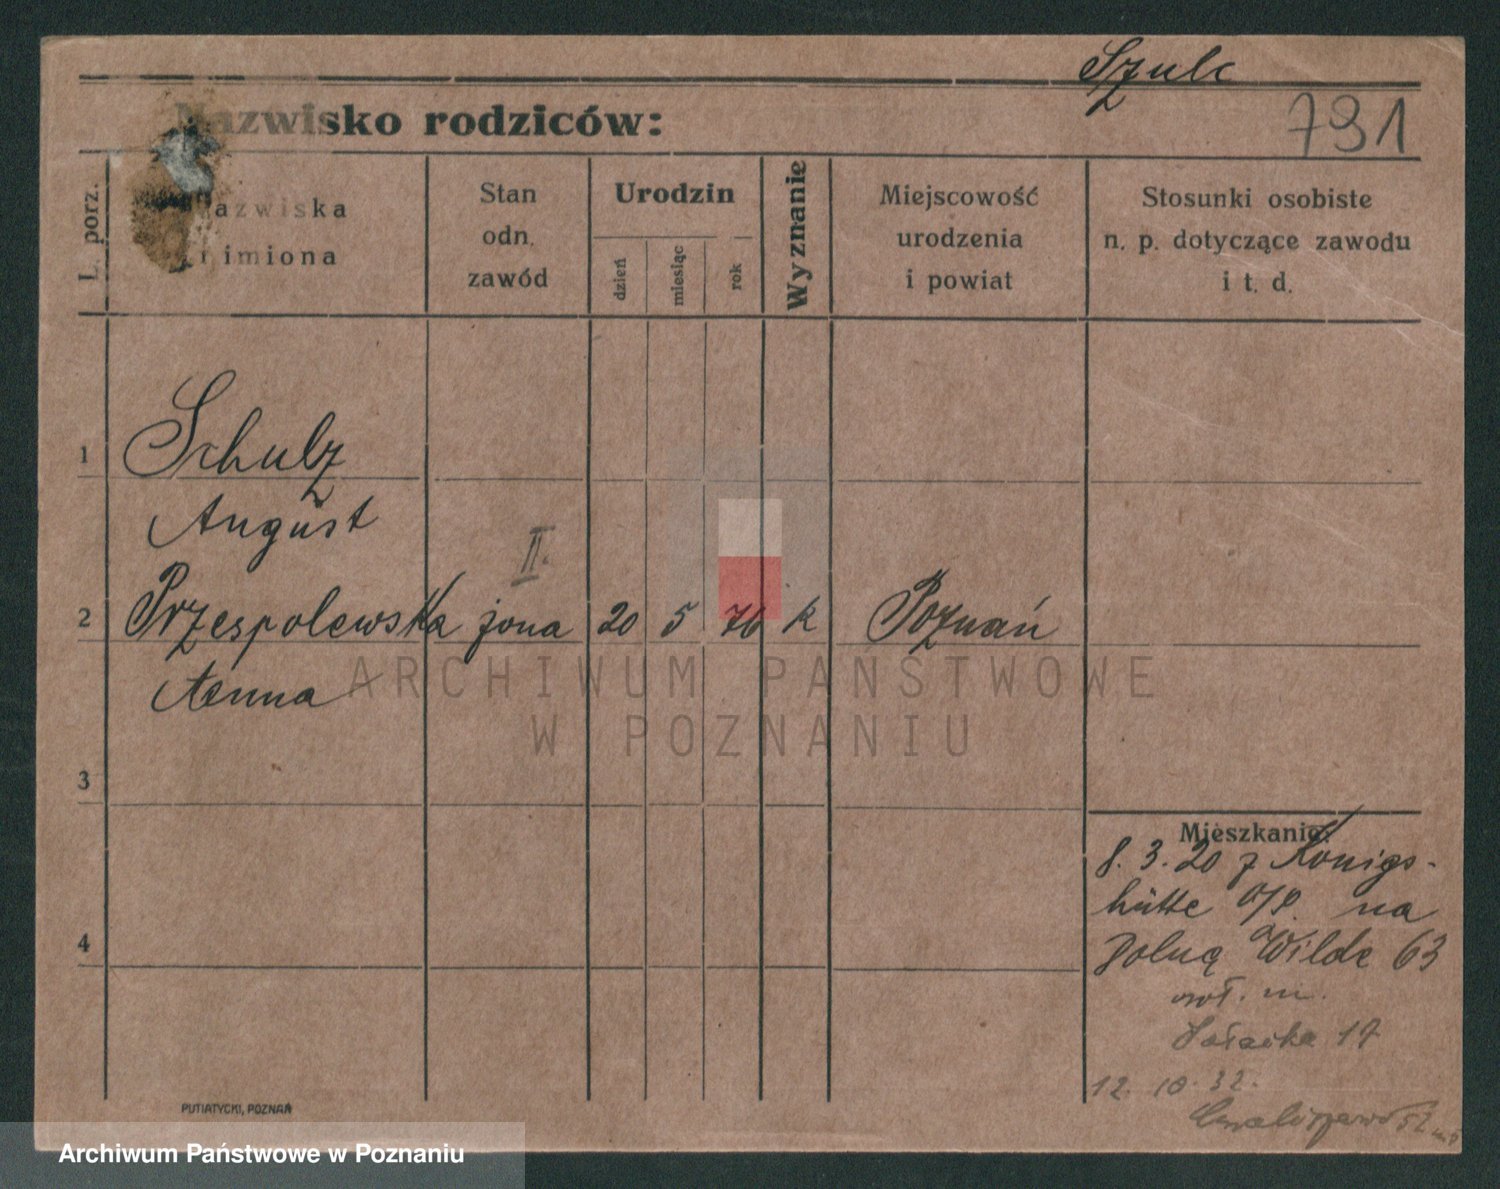 Szulc
Nazwisko rodziców:
791
L. porz.
Nazwiska
i imiona
Stan
odn.
zawód
Urodzin
dzień
miesiąc
rok
Wyznanie
Miejscowość
urodzenia
i powiat
Stosunki osobiste
n. p. dotyczące zawodu
i t. d.
1
Schulz
August
II.
2 Przespolewska żona 20 5 76 k Poznań
Anna
ARCHIWUM PAŃSTWOWE
W POZNANIU
3
Mieszkanie:
8. 3. 20 z Königs-
hütte O/S. na
Dolną Wildę 63
m.
17
4
12. 10. 32.
PUTIATYCKI, POZNAŃ
Archiwum Państwowe w Poznaniu